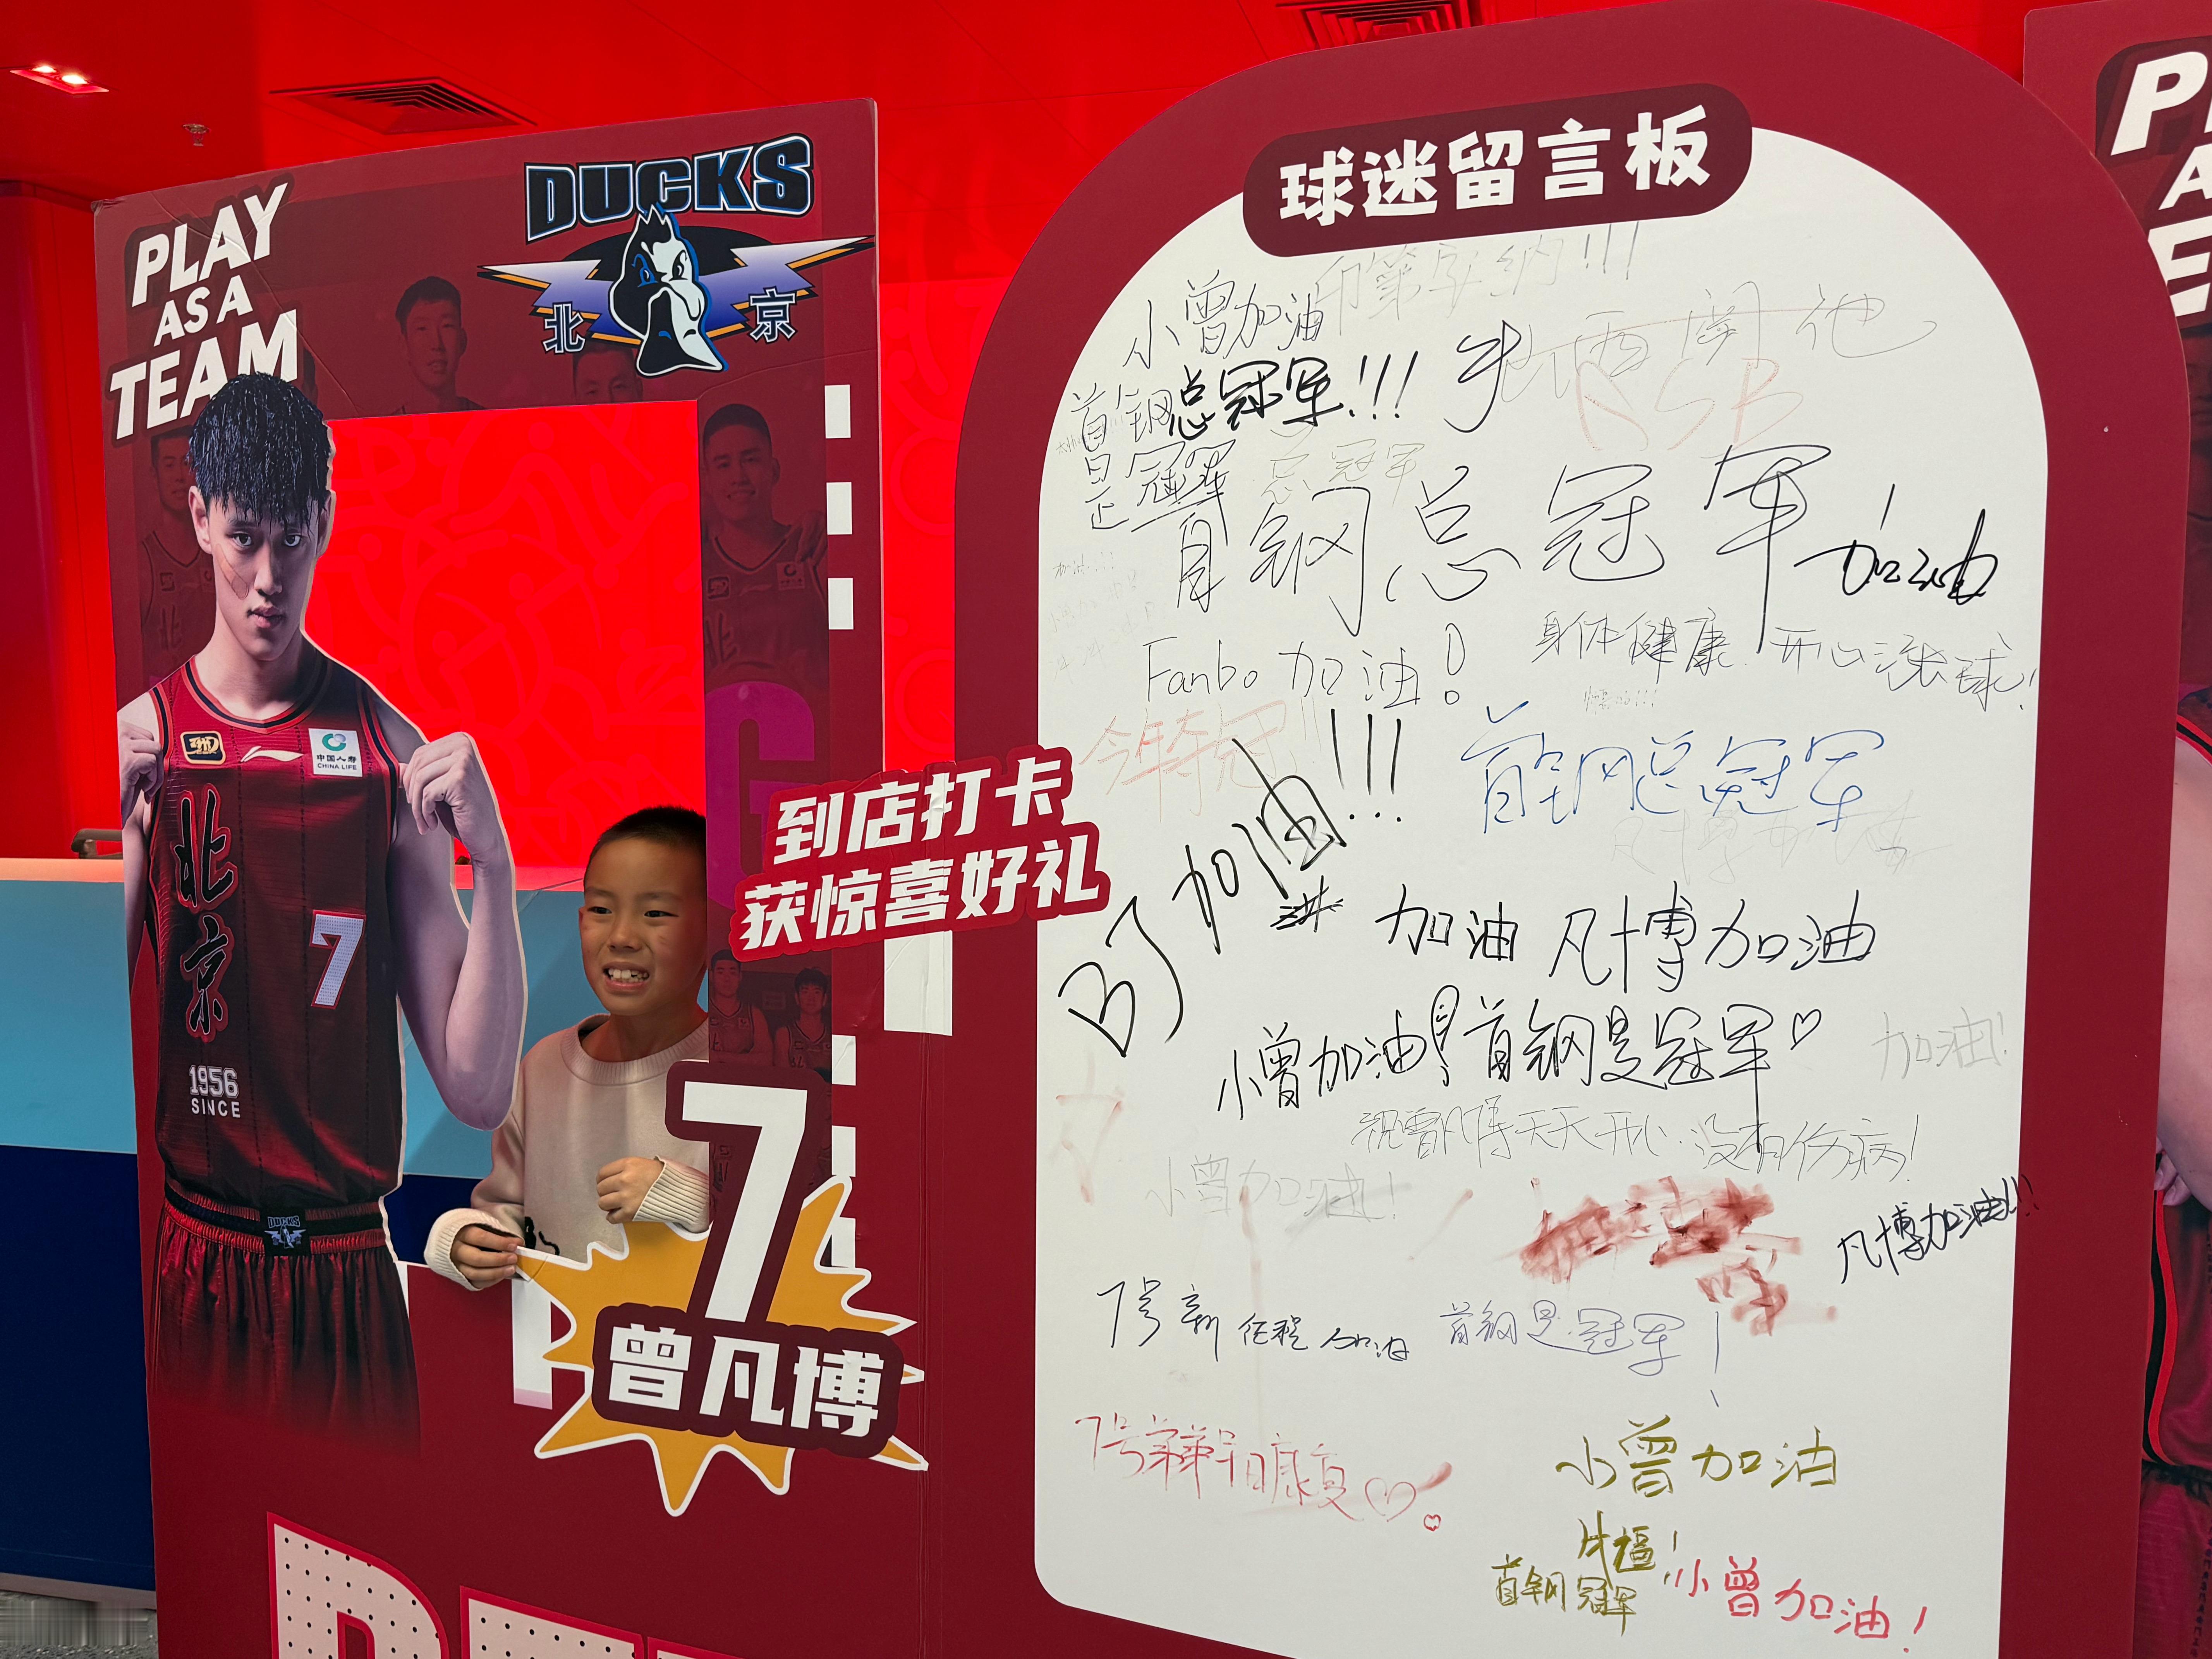 PLAY
AS A
TEAM
DUCKS
北京
中国人寿
CHINA LIFE
北京
7
1956
SINCE
DUCKS
到店打卡
获惊喜好礼
7
曾凡博
球迷留言板
小曾加油
印第安纳!!!
首钢总冠军!!!
总冠军
首钢总冠军
加油
Fanbo 加油!
身体健康 开心滚球!
今年夺冠!!
首钢总冠军
BJ加油!!!
加油 凡博加油
小曾加油! 首钢是冠军♡
加油!
祝曾凡博天天开心 没有伤病!
小曾加油!
凡博加油!!!
7号新征程加油
首钢是冠军!
7号弟弟早日康复♡
小曾加油
牛逼!
首钢冠军
小曾加油!